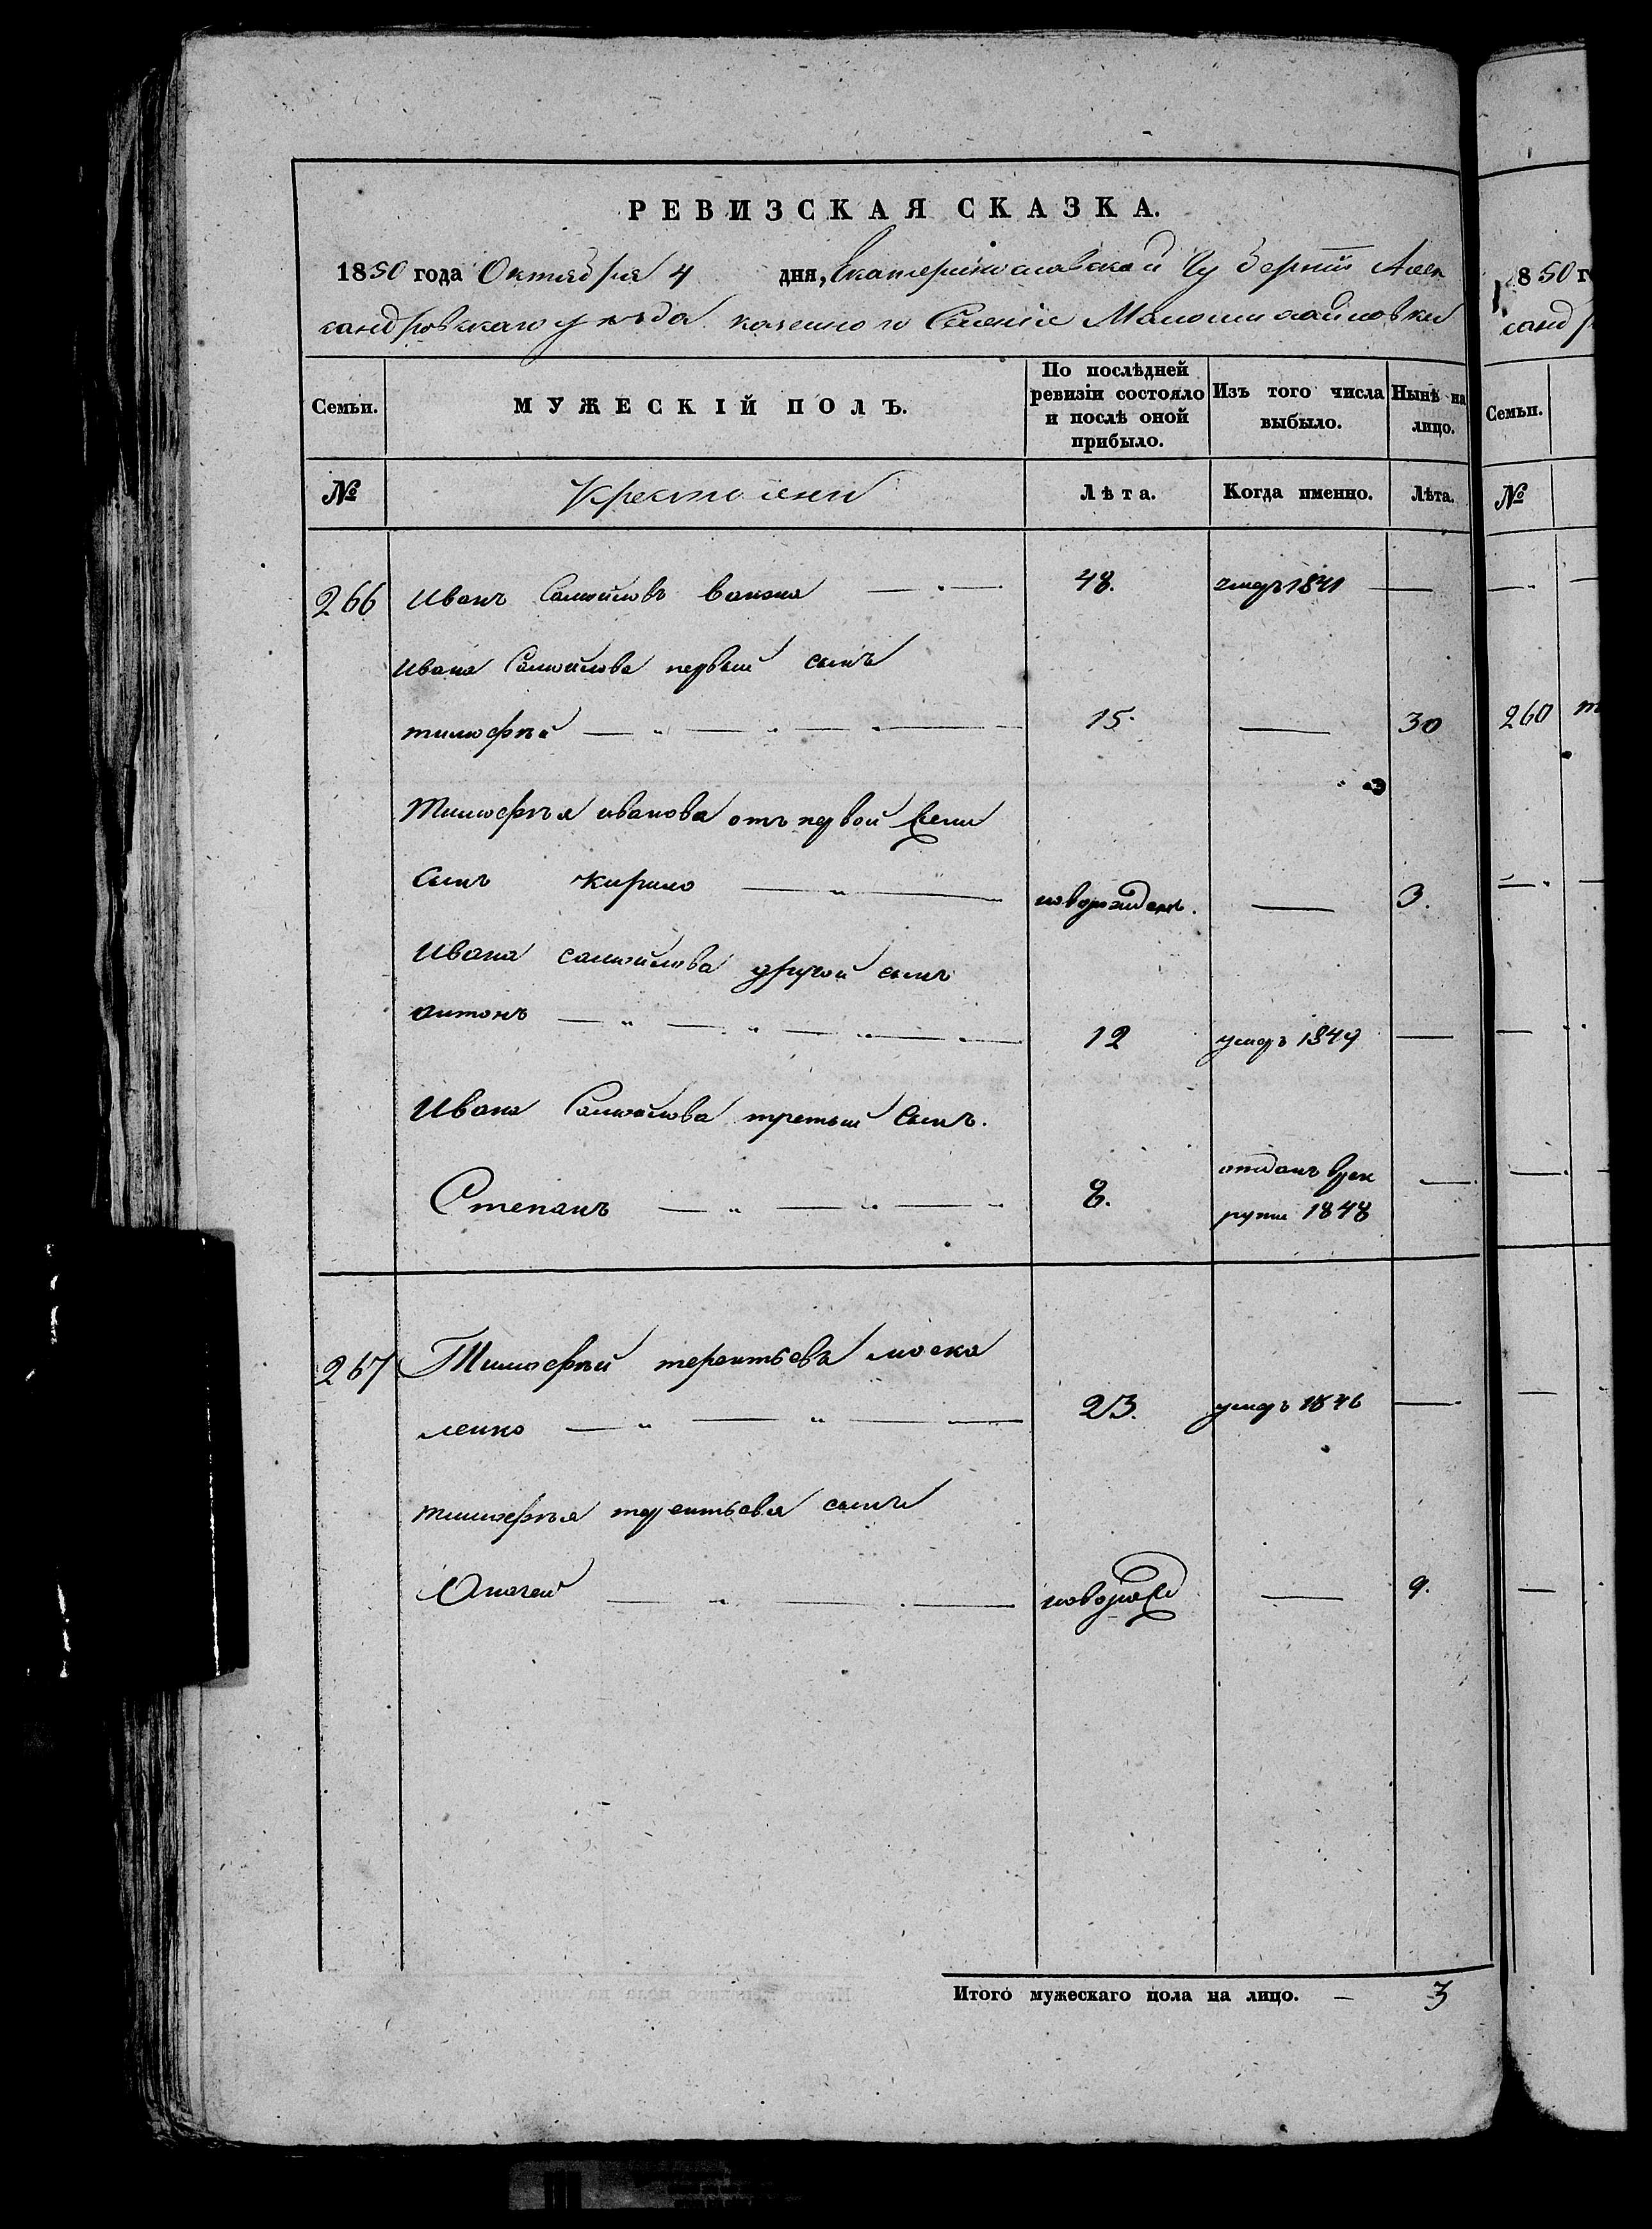 РЕВИЗСКАЯ СКАЗКА.
1850 года Октября 4 дня, Екатеринославской Губернии Алек
сандровскаго уезда казенного Селения Маломихайловки
Семьи. МУЖЕСКІЙ ПОЛЪ. По послѣдней ревизіи состояло и послѣ оной прибыло. Изъ того числа выбыло. Нынѣ на лицо.
№ Крестьяне Лѣта. Когда именно. Лѣта.
266 Иванъ Самойловъ 48. умеръ 1841 —
Ивана Самойлова первый сынъ
тимофѣй 15. — 30
Тимофѣя иванова отъ первой жены
сынъ Кирило новорожденъ. — 3.
Ивана самойлова другой сынъ
антонъ 12 умеръ 1849 —
Ивана Самойлова третьи Сынъ.
Степанъ 8. отданъ врек
руты 1848 —
267 Тимофѣй терентьевъ моска
ленко 23. умеръ 1846 —
тимофѣя терентьева сынъ
новорожд — 9.
Итого мужескаго пола на лицо. — 3
850 г
санд
Семьи.
№
260 т